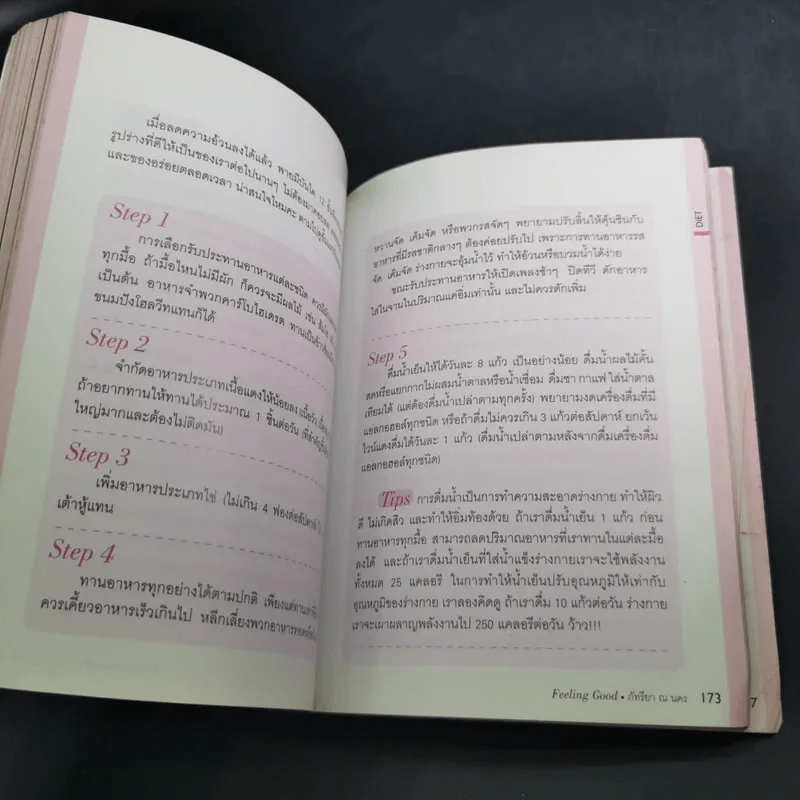 เมื่อลดความอ้วนลงได้แล้ว พายมีบันได 12 ขั้น
รูปร่างที่ดีให้เป็นของเราต่อไปนานๆ ไม่ต้อง
และของอร่อยตลอดเวลา น่าสนใจไหมคะ
Step 1
การเลือกรับประทานอาหารแต่ละชนิด
ทุกมื้อ ถ้ามื้อไหนไม่มีผัก ก็ควรจะมีผลไม้ เช่น
เป็นต้น อาหารจำพวกคาร์โบไฮเดรต
ขนมปังโฮลวีทแทนก็ได้
Step 2
จำกัดอาหารประเภทเนื้อแดงให้น้อยลง (เนื้อวัว
ถ้าอยากทานให้ทานได้ประมาณ 1 ชิ้นต่อวัน
ใหญ่มากและต้องไม่ติดมัน)
Step 3
เพิ่มอาหารประเภทไข่ (ไม่เกิน 4 ฟองต่อสัปดาห์)
เต้าหู้แทน
Step 4
ทานอาหารทุกอย่างได้ตามปกติ เพียงแต่
ควรเคี้ยวอาหารเร็วเกินไป หลีกเลี่ยงพวกอาหารทอด
DIET
หวานจัด เค็มจัด หรือพวกรสจัดๆ พยายามปรับลิ้นให้คุ้นชินกับ
อาหารที่มีรสชาติกลางๆ ต้องค่อยปรับไป เพราะการทานอาหารรส
จัด เค็มจัด ร่างกายจะอุ้มน้ำไว้ ทำให้อ้วนหรือบวมน้ำได้ง่าย
ขณะรับประทานอาหารให้เปิดเพลงช้าๆ ปิดทีวี ตักอาหาร
ใส่จานในปริมาณแค่อิ่มเท่านั้น และไม่ควรตักเพิ่ม
Step 5
ดื่มน้ำเย็นให้ได้วันละ 8 แก้ว เป็นอย่างน้อย ดื่มน้ำผลไม้คั้น
สดหรือแยกกากไม่ผสมน้ำตาลหรือน้ำเชื่อม ดื่มชา กาแฟ ใส่น้ำตาล
เทียมได้ (แต่ต้องดื่มน้ำเปล่าตามทุกครั้ง) พยายามงดเครื่องดื่มที่มี
แอลกอฮอล์ทุกชนิด หรือถ้าดื่มไม่ควรเกิน 3 แก้วต่อสัปดาห์ ยกเว้น
ไวน์แดงดื่มได้วันละ 1 แก้ว (ดื่มน้ำเปล่าตามหลังจากดื่มเครื่องดื่ม
แอลกอฮอล์ทุกชนิด)
Tips การดื่มน้ำเป็นการทำความสะอาดร่างกาย ทำให้ผิว
ดี ไม่เกิดสิว และทำให้อิ่มท้องด้วย ถ้าเราดื่มน้ำเย็น 1 แก้ว ก่อน
ทานอาหารทุกมื้อ สามารถลดปริมาณอาหารที่เราทานในแต่ละมื้อ
ลงได้ และถ้าเราดื่มน้ำเย็นที่ใส่น้ำแข็งร่างกายเราจะใช้พลังงาน
ทั้งหมด 25 แคลอรี ในการทำให้น้ำเย็นปรับอุณหภูมิให้เท่ากับ
อุณหภูมิของร่างกาย เราลองคิดดู ถ้าเราดื่ม 10 แก้วต่อวัน ร่างกาย
เราจะเผาผลาญพลังงานไป 250 แคลอรีต่อวัน ว้าว!!!
Feeling Good • ภัทรียา ณ นคร 173
7